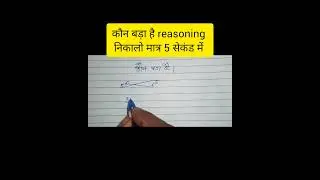 कौन बड़ा है reasoning
निकालो मात्र 5 सेकंड में
कौन बड़ा है।